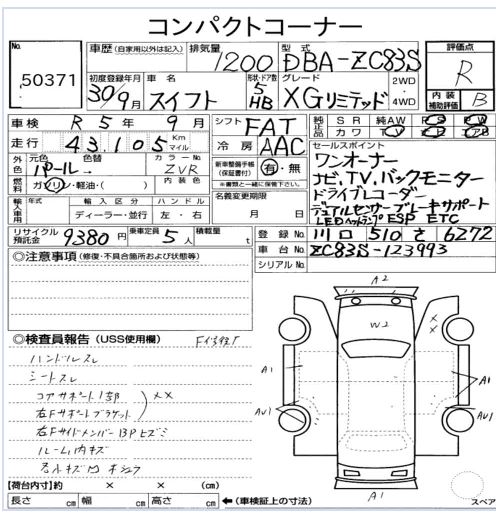 コンパクトコーナー
No. 50371
車歴 (自家用以外は記入) 排気量 1200 型式 DBA-ZC83S 評価点 R
初度登録年月 30/9月 車名 スイフト 形状・ドア数 5 HB グレード XGリミテッド 2WD・4WD 内装補助評価 B
車検 R 5年 9月 シフト FAT 純正品 SR 純AW PS PW
カワ TV エアB
走行 43,105 Km マイル 冷房 AAC セールスポイント
外色 元色 パール 色替 カラーNo. ZVR ワンオーナー
ナビ、TV、バックモニター
燃料 ガソリン・軽油・( ) 内装色 新車整備手帳(保証書付) 有・無 ※書類と一緒に保管下さい。 ドライブレコーダー
輸入車用 年式 輸入区分 ディーラー・並行 ハンドル 左・右 名義変更期限 月 日 デュアルセンサーブレーキサポート
LEDヘッドランプ ESP ETC
リサイクル預託金 9380円 乗車定員 5人 積載量 t 登録No. 川口 510 6272
◎注意事項 (修復・不具合箇所および状態等) 車台No. ZC83S-123993
シリアルNo.
◎検査員報告 (USS使用欄)
ハンドルスレ
シートスレ
コアサポート1部 XX
右Fサポートブラケット
右FサイドメンバーBPヒズミ
ルーム内キズ
A2
W2
A1
A1
AU1
AU1
A1
【荷台内寸】約 × × (cm)
長さ cm 幅 cm 高さ cm ←(車検証上の寸法)
スペア